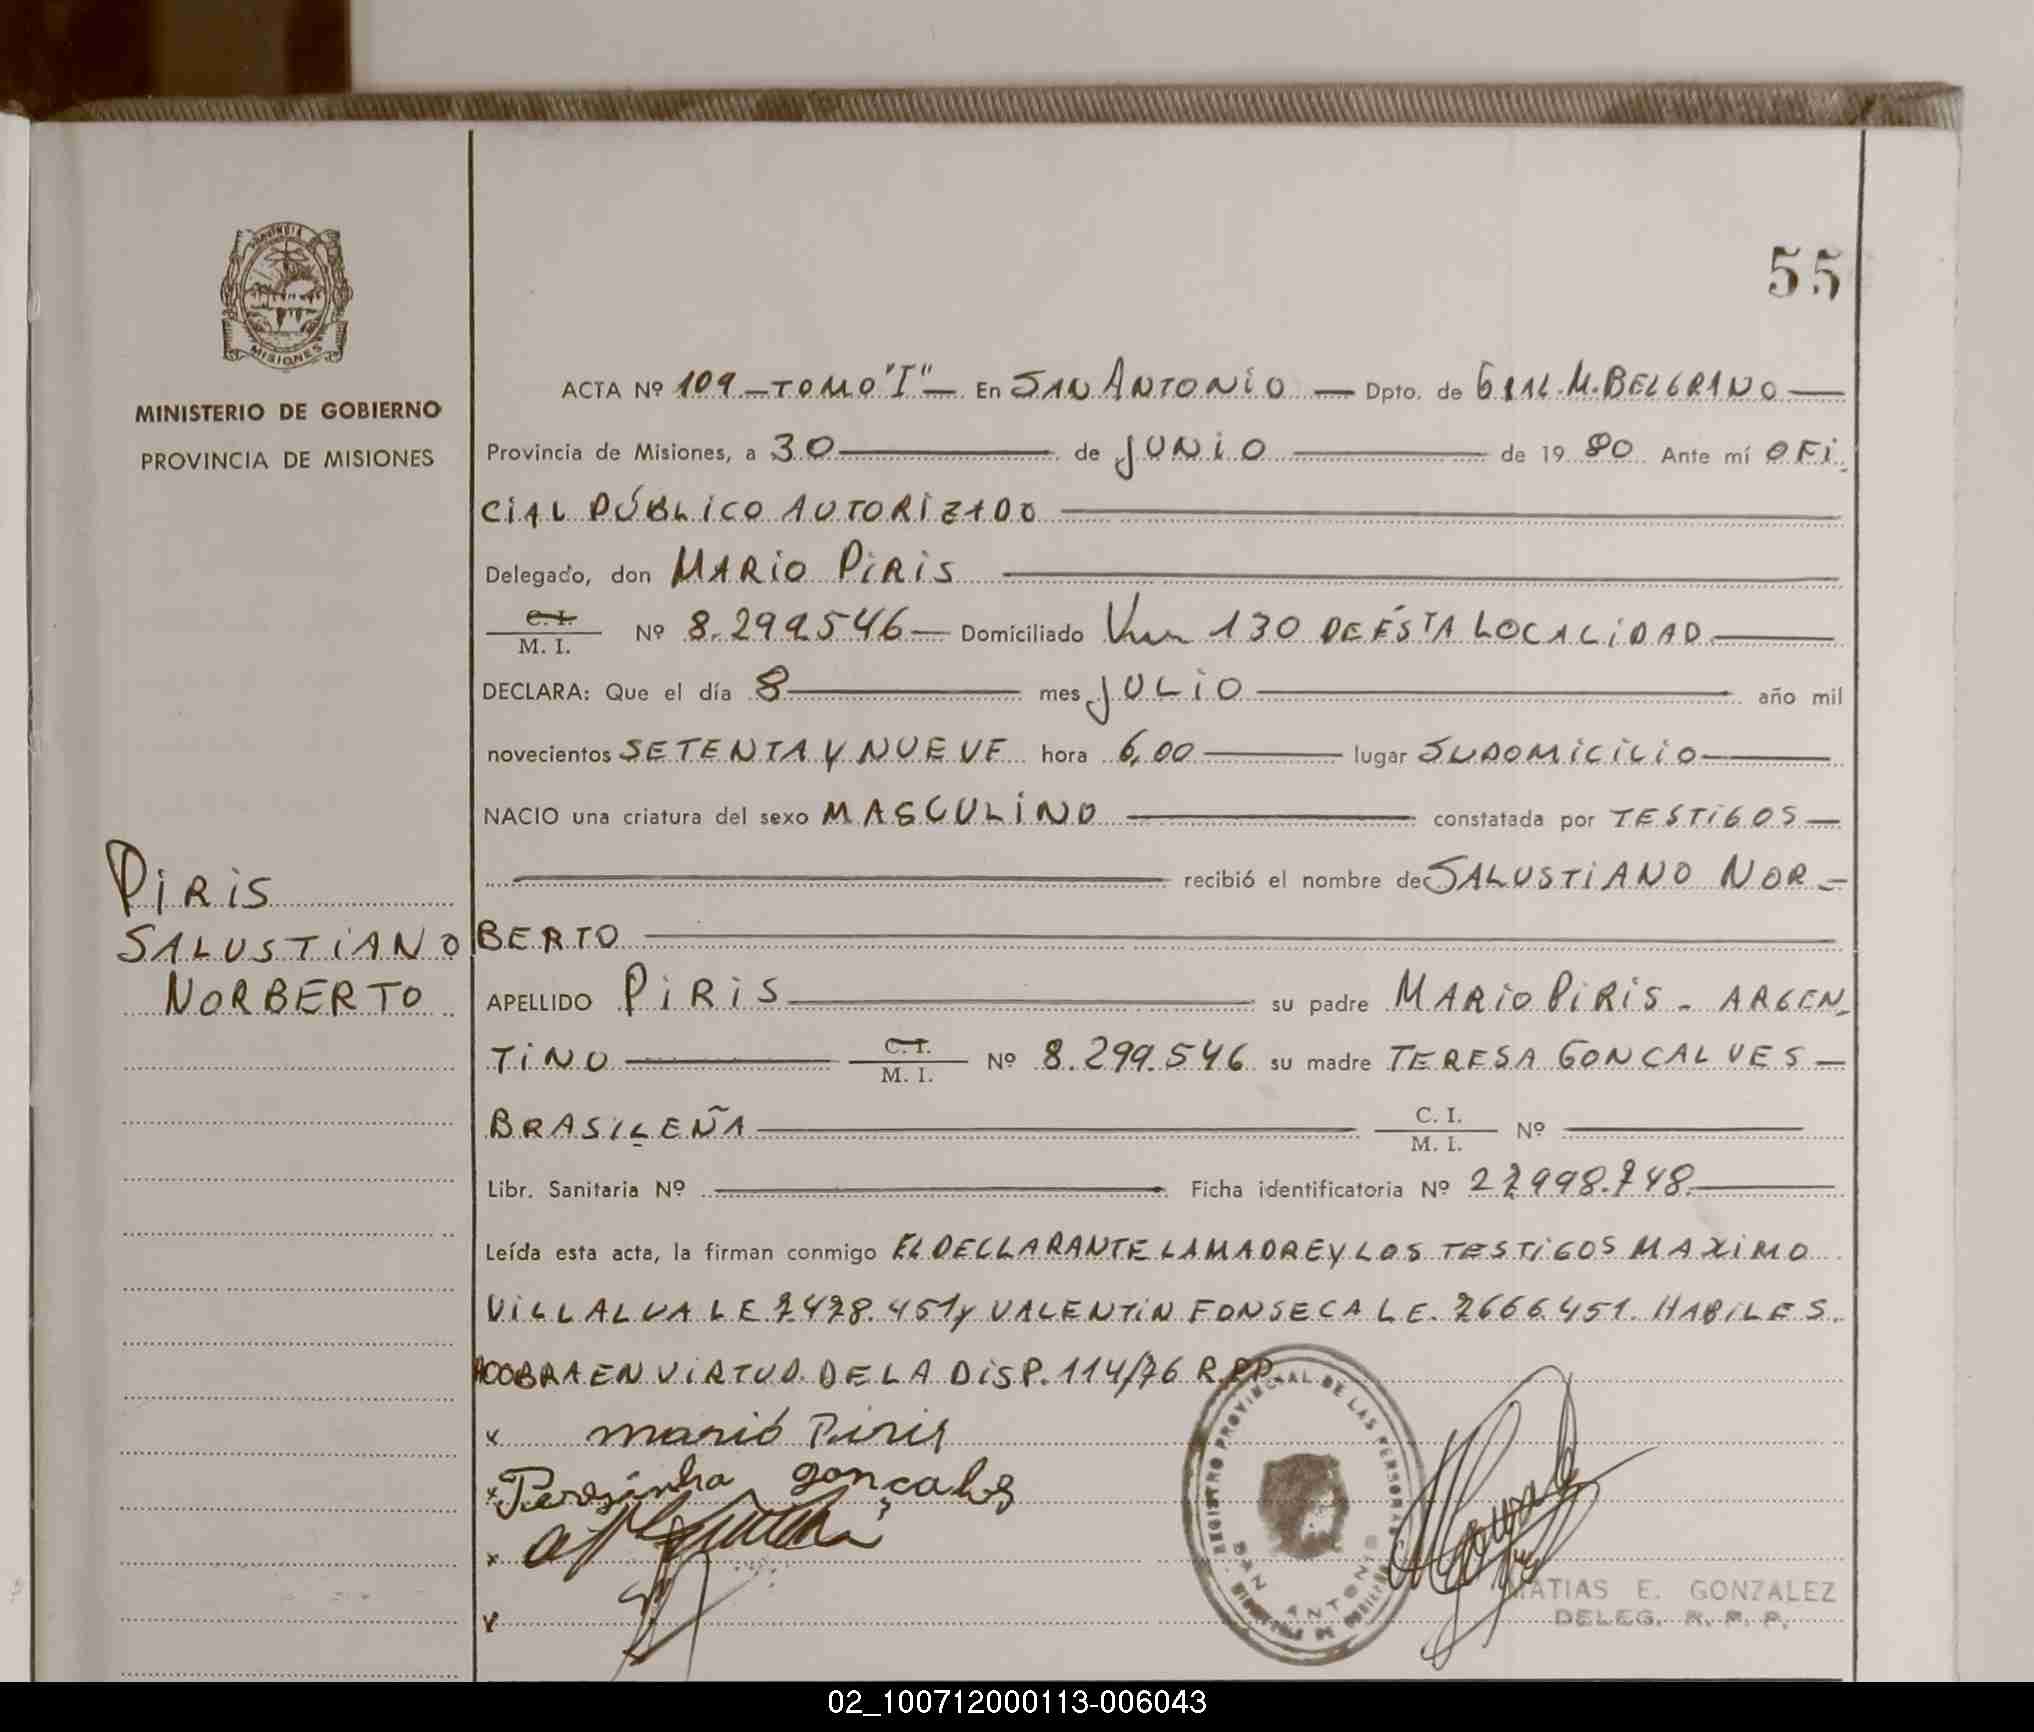 55
PROVINCIA
MISIONES
MINISTERIO DE GOBIERNO
PROVINCIA DE MISIONES
ACTA Nº 109 – TOMO "I" – En SAN ANTONIO — Dpto. de GRAL. M. BELGRANO —
Provincia de Misiones, a 30 — de JUNIO — de 19 80 Ante mí OFI-
CIAL PÚBLICO AUTORIZADO —
Delegado, don MARIO PIRIS —
C. I.
M. I. Nº 8.299.546 — Domiciliado Km 130 DE ÉSTA LOCALIDAD —
DECLARA: Que el día 8 — mes JULIO — año mil
novecientos SETENTA Y NUEVE hora 6,00 — lugar SU DOMICILIO —
NACIO una criatura del sexo MASCULINO — constatada por TESTIGOS —
— recibió el nombre de SALUSTIANO NOR-
BERTO —
PIRIS
SALUSTIANO
NORBERTO
APELLIDO PIRIS — su padre MARIO PIRIS - ARGEN-
TINO — C. I. / M. I. Nº 8.299.546 su madre TERESA GONCALVES —
BRASILEÑA — C. I. / M. I. Nº —
Libr. Sanitaria Nº — Ficha identificatoria Nº 27.998.748 —
Leída esta acta, la firman conmigo EL DECLARANTE LA MADRE Y LOS TESTIGOS MAXIMO
VILLALVA L E 7.478.451 y VALENTIN FONSECA L E. 7666.451. HABILES.
ADOBRA EN VIRTUD DE LA DISP. 114/76 R.P.P.
x marió Piris
x Peresinha gonçalves
x
x
REGISTRO PROVINCIAL DE LAS PERSONAS
SAN ANTONIO
MATIAS E. GONZALEZ
DELEG. R. P. P.
02_100712000113-006043